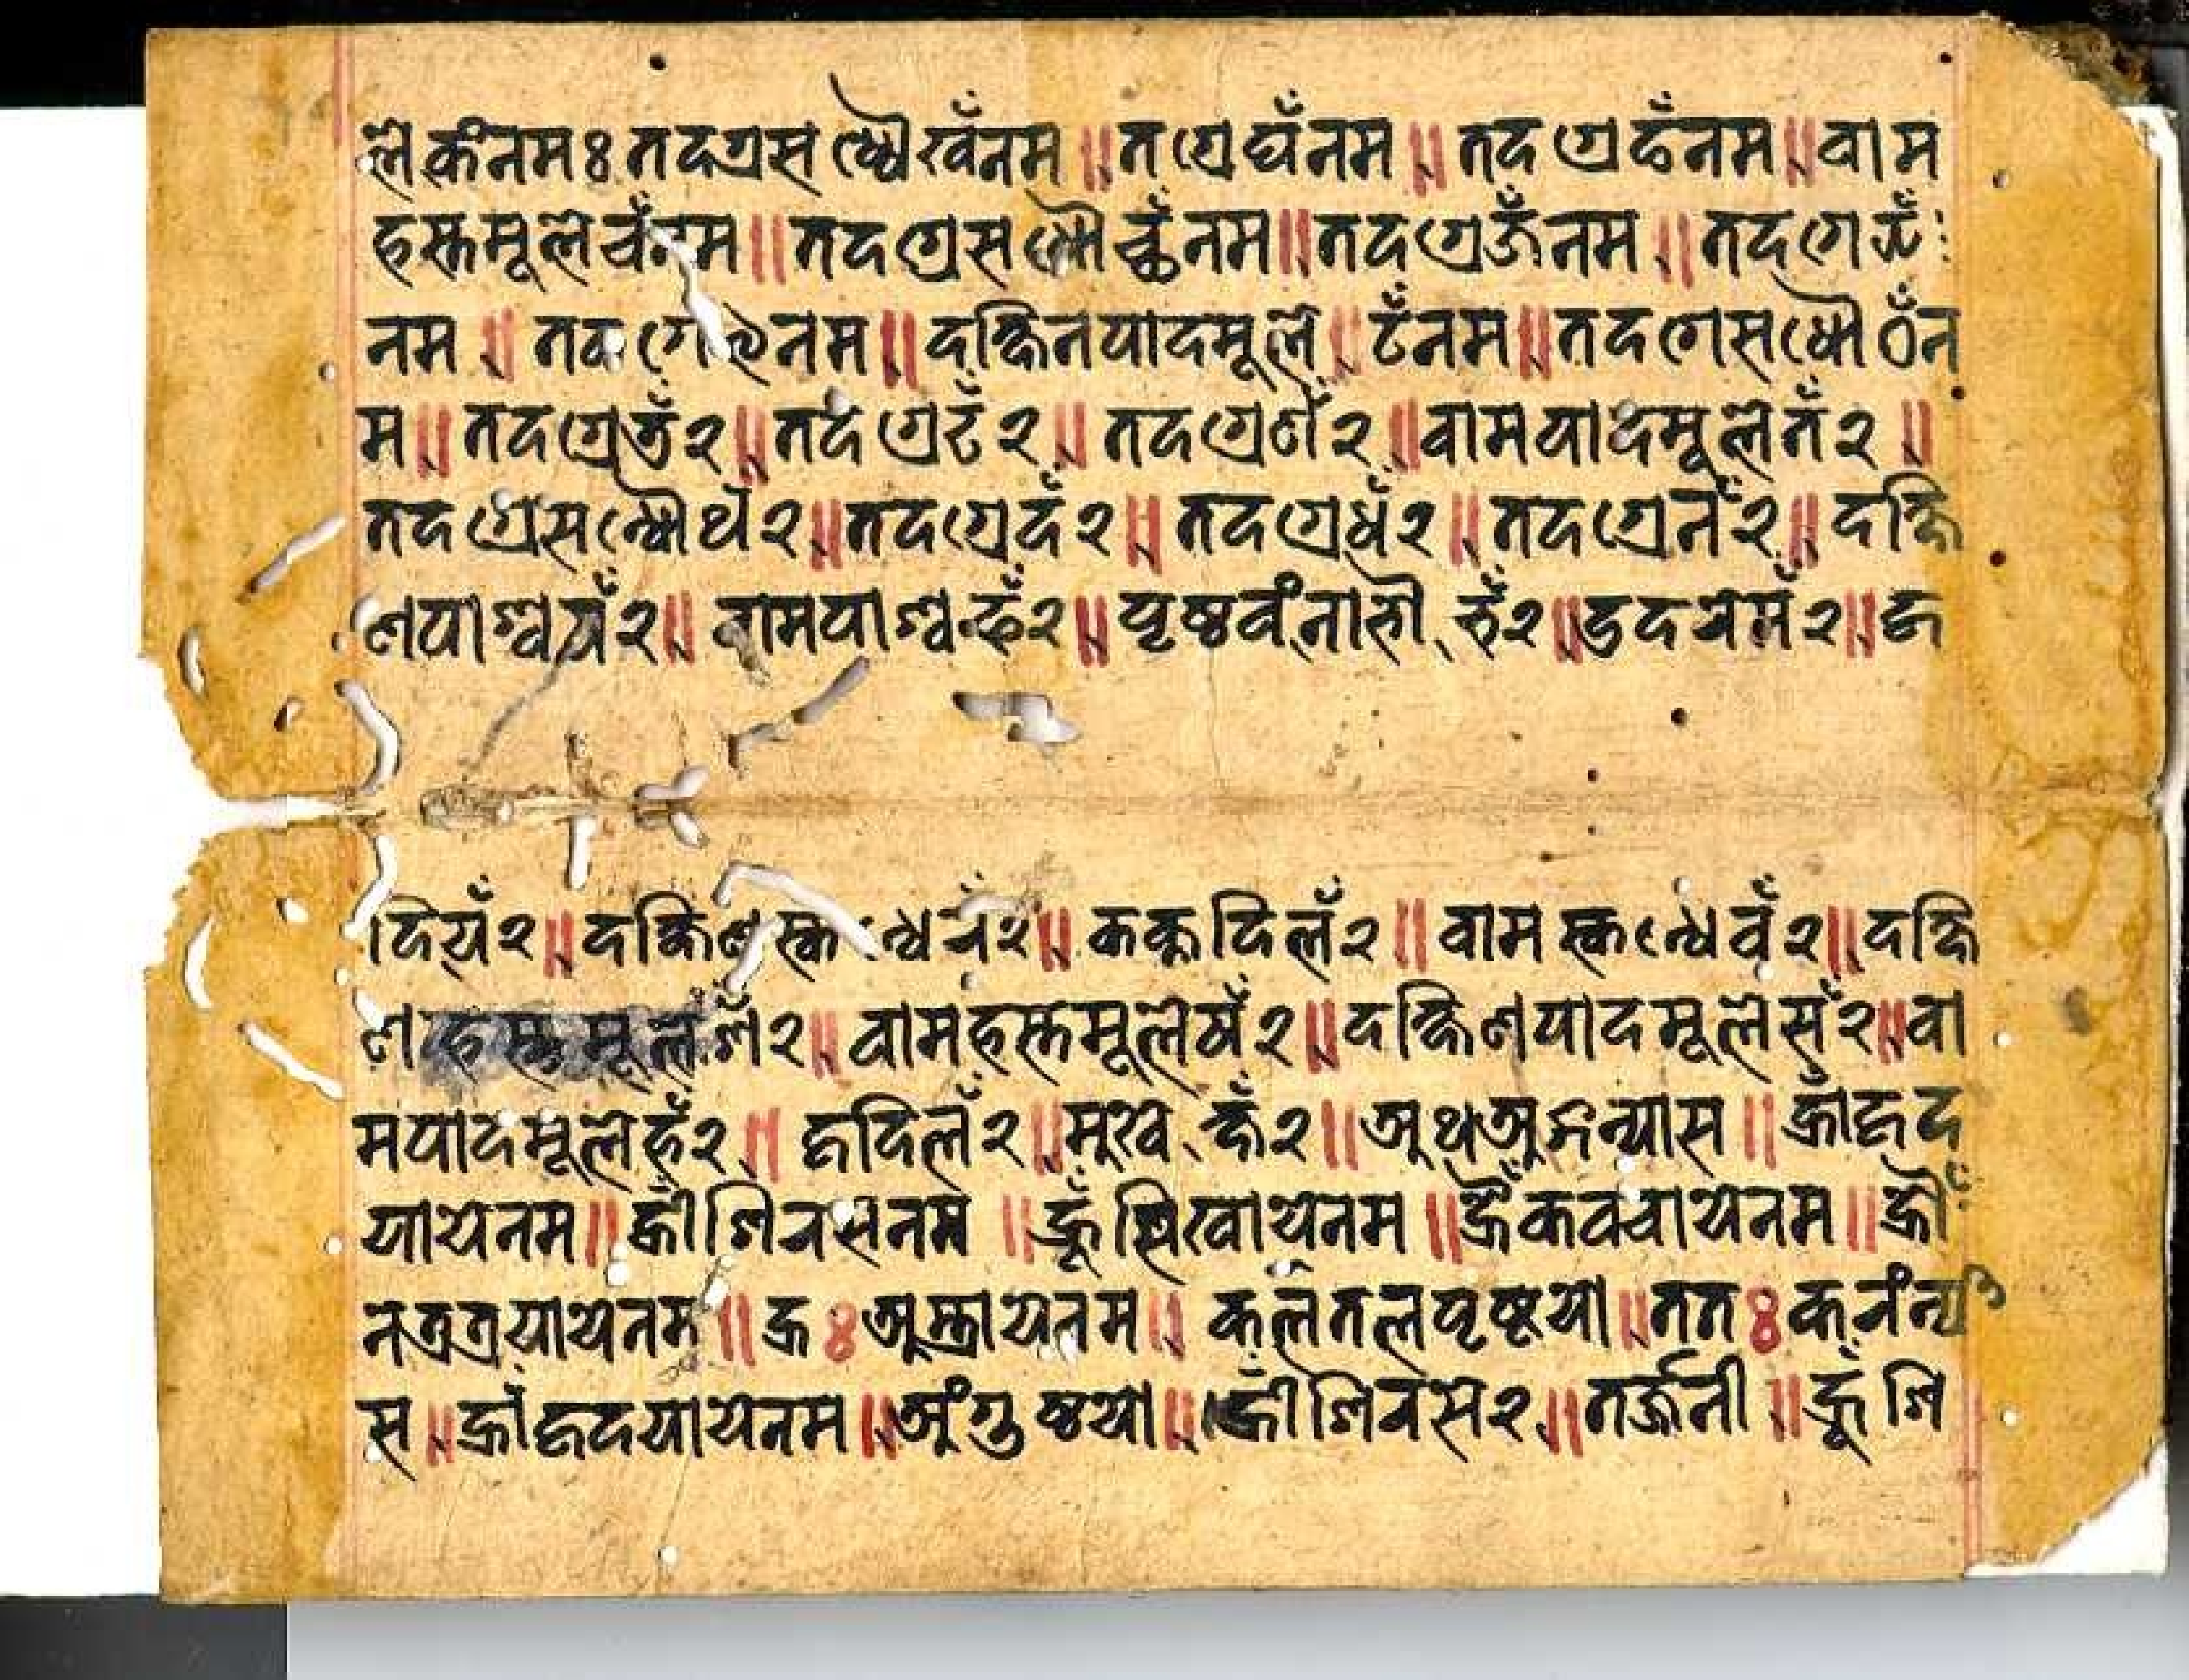 ले कँनमः तदग्रसन्धौ खँनम ॥ तग्रे घँनम ॥ तदग्रे ङँनम ॥ वाम
हस्तमूले चँनम ॥ तदग्रेसन्धौ छँनम ॥ तदग्रे जँनम ॥ तदगे झँ
नम ॥ नम ॥ दक्षिनपादमूले ॥ टँनम ॥ तदगेसन्धौ ठँन
म ॥ तदग्रे डँ२ ॥ तदग्रे ढँ२ ॥ तदग्रे णँ२ ॥ वामपादमूले तँ२ ॥
तदग्रेसन्धौ थँ२ ॥ तदग्रे दँ२ ॥ तदग्रे धँ२ ॥ तदग्रे नँ२ ॥ दक्षि
णपाश्व पँ२ ॥ वामपाश्व फँ२ ॥ पृष्ठ बँ नाभौ भँ२ ॥ उदर मँ२ ॥ हृ
दि यँ२ ॥ दक्षिणस्कन्ध रँ२ ॥ ककुदि लँ२ ॥ वामस्कन्धे वँ२ ॥ दक्षि
णहस्तमूले शँ२ ॥ वामहस्तमूले षँ२ ॥ दक्षिणपादमूले सँ२ ॥ वा
मपादमूले हँ२ ॥ हृदि लँ२ ॥ मुख क्षँ२ ॥ अथ अङ्गन्यास ॥ ह्राँ हृद
यायनम ॥ ह्रीँ शिरसनम ॥ ह्रूँ शिखायनम ॥ ह्रैँ कवचायनम ॥ ह्रौँ
नत्रत्रयायनम ॥ ह्रः अस्त्रायनम ॥ कलतलपृष्टया ॥ ततः करंन्या
स ॥ ह्राँ हृदयायनम ॥ अंगुष्ठया ॥ ह्रीँ शिरसे२ ॥ तर्ज्जनी ॥ ह्रूँ शि